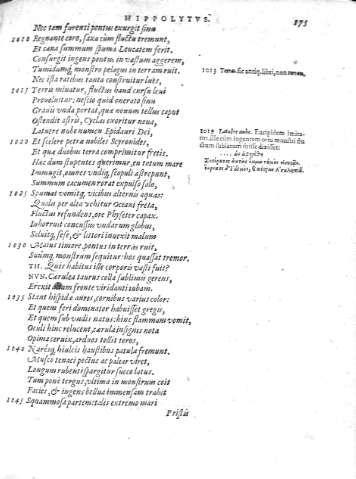 HIPPOLYTVS. 175
Nec tam furenti pontus exurgit sinu
Regnante coro, saxa cùm fluctu tremunt,
Et cana summum spuma Leucatem ferit.
Consurgit ingens pontus in vastum aggerem,
Tumidumq; monstro pelagus in terram ruit.
Nec ista ratibus tanta construitur lues,
1015 Terris minatur, fluctus haud cursu leui
Prouoluitur: nescio quid onerato sinu
Grauis vnda portat, quæ nouum tellus caput
Ostendit astris, Cyclas exoritur noua,
Latuere nube numen Epidauri Dei,
1020 Et scelere petræ nobiles Scyronides,
Et quæ duobus terra comprimitur fretis.
Hæc dum stupentes querimur, en totum mare
Immugit, omnes vndiq; scopuli astrepunt,
Summum cacumen rorat expulso sale,
1025 Spumat vomitq; vicibus alternis aquas:
Qualis per alta vehitur Oceani freta,
Fluctus refundens, ore Physeter capax.
Inhorruit concussus vndarum globus,
Soluitq; sese, & littori inuexit malum
1030 Maius timore, pontus in terras ruit,
Suumq; monstrum sequitur: hos quassat tremor.
TH. Quis habitus ille corporis vasti fuit?
NVN. Cærulea taurus colla sublimis gerens,
Erexit altam fronte viridanti iubam.
1035 Stant hispidæ aures, cornibus varius color:
Et quem feri dominator habuisset gregis,
Et quem sub vndis natus: hinc flammam vomit,
Oculi hinc relucent, cærula insignis nota
Opima ceruix, arduos tollit toros,
1040 Naresq; hiulcis haustibus patulæ fremunt.
Musco tenaci pectus ac palear viret,
Longum rubenti spargitur fuco latus.
Tum pone tergus, vltima in monstrum coit
Facies, & ingens bellua immensam trahit
1045 Squammosa partem: talis extremo mari
Pristis
1019 Latuere nube.